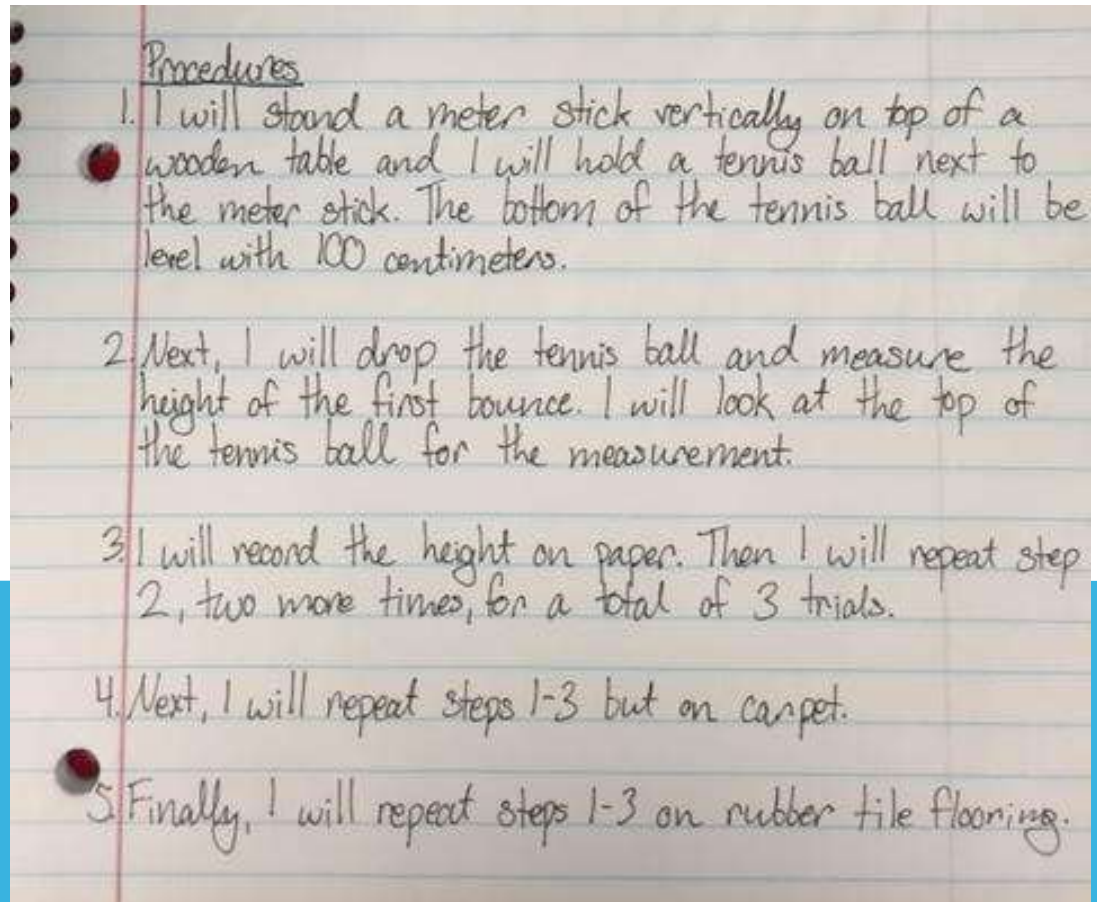 Procedures
1. I will stand a meter stick vertically on top of a
wooden table and I will hold a tennis ball next to
the meter stick. The bottom of the tennis ball will be
level with 100 centimeters.
2. Next, I will drop the tennis ball and measure the
height of the first bounce. I will look at the top of
the tennis ball for the measurement.
3. I will record the height on paper. Then I will repeat step
2, two more times, for a total of 3 trials.
4. Next, I will repeat steps 1-3 but on carpet.
5. Finally, I will repeat steps 1-3 on rubber tile flooring.